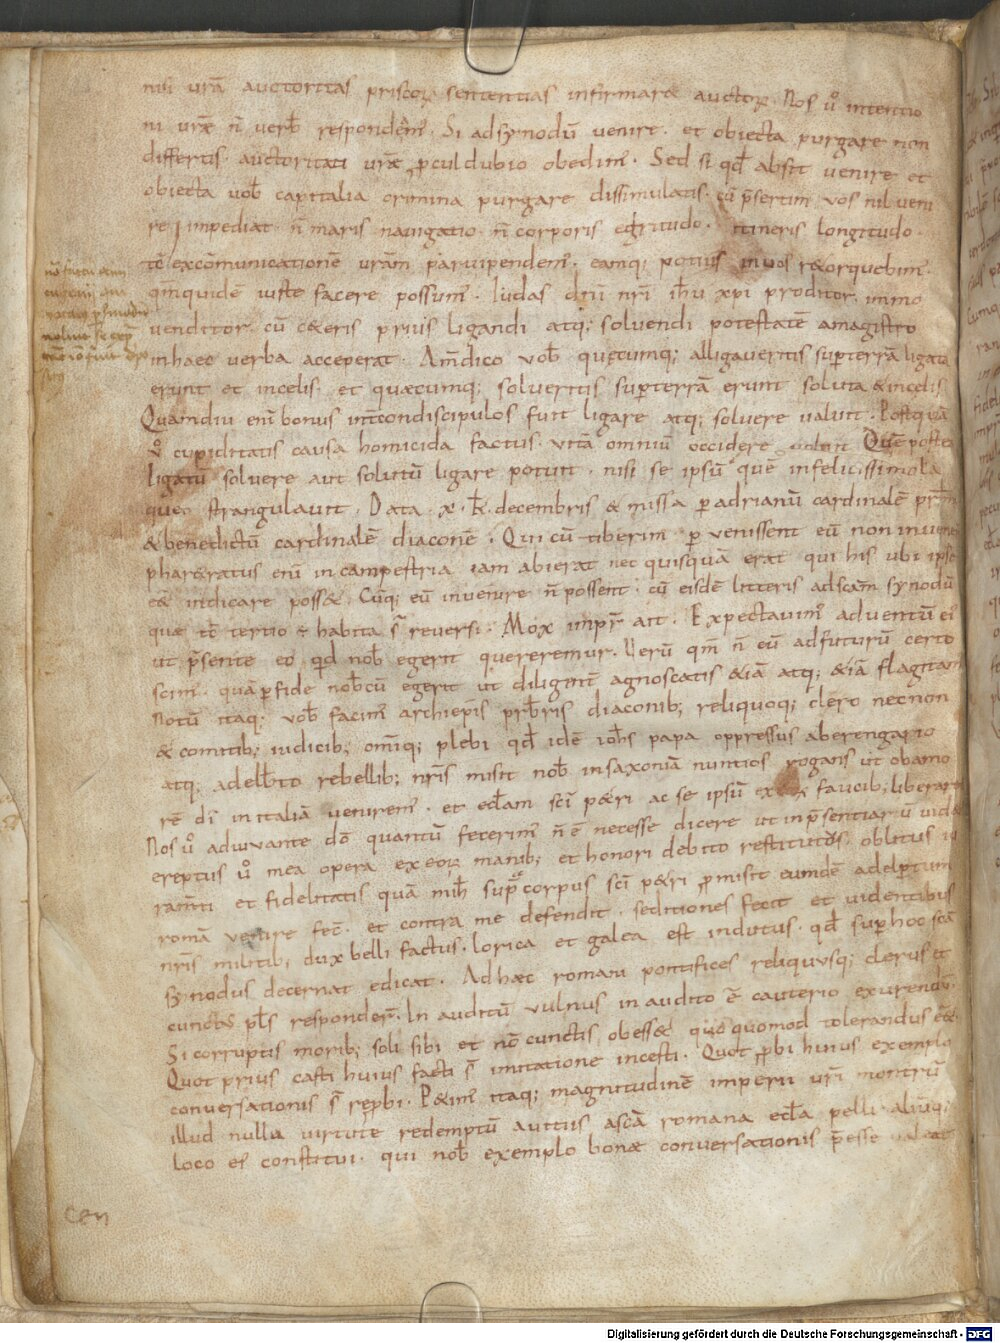 nisi vrā auctoritas priscoꝝ sententias infirmaræ auctoꝝ. Nos u̾ intentio
ni vræ n̄ verb̄ respondēm̄. Si adsynodū venire. et obiecta purgare non
differtis. auctoritati vræ ꝓculdubio obedim̄. Sed si qđ absit venire et
obiecta vob̄ capitalia crimina purgare dissimulatis. cū p̄sertim vos nil veni
re impediat. n̄ maris navigatio. n̄ corporis egritudo. itineris longitudo.
tē excōmunicationē vrām parvipendem̄. eamq; potius in vos r&orquebim̄.
qm̄quidē iuste facere possum̄. Iudas dn̄i nr̄i ih̄u xp̄i proditor. immo
venditor. cū c&eris prius ligandi atq; solvendi potestatē amagistro
inhaec verba acceperat. Am̄dico vob̄ quęcumq; alligaveritis sup̄terrā ligata
erunt et incelis. et quæcumq; solveritis sup̄terrā erunt soluta & incelis.
Quamdiu eni bonus int̄condiscipulos fuit ligare atq; solvere valuit. Postquā
u̾ cupiditatis causa homicida factus. vitā omniū occidere voluit Quē postea
ligatū solvere aut solutū ligare potuit. nisi se ipsū quē infelicissimo la
queo strangulavit. Data .x. k̄. decembris & missa p̱ adrianū cardinalē pr̄bm̄
& benedictū cardinalē diaconē. Qui cū tiberim p̱venissent eū non invene
phar&ratus enī in campestria iam abierat nec quisquā erat qui his ubi ipse
eēt indicare poss&. Cūq; eū invenire n̄ possent. cū eisdē litteris adscām synodū
quæ tē tertio ē habita s̄ reversi. Mox imp̱r ait. Expectavim̄ adventū ei̾
ut p̄sente eo qđ nob̄ egerit quereremur. Verū qm̄ n̄ eū adfuturū certo
scim̄. quā p̱fide nob̄cū egerit ut diligent̄ agnoscatis &iā atq; &iā flagitam̄
Notū itaq; vob̄ facim̄ archiepis pr̄bris diaconib; reliquoq; clero necnon
& comitib; iudicib; om̄iq; plebi qđ idē ioh̄s papa oppressus aberengario
atq; adelb̄to rebellib; nr̄is misit nob̄ insaxoniā nuntios rogans ut obamo
rē dī in italiā venirem̄. et eccl̄am scī p&ri ac se ipsū ex faucib; liberar
Nos u̾ adiuvante dō quantū fecerim̄ n̄ ē necesse dicere ut inp̄sentiarū vid&
ereptus u̾ mea opera ex eoꝝ manib; et honori debito restitutus. oblitus iu
ram̄ti et fidelitatis quā mih̄ sup̄ corpus scī p&ri ꝓmisit eundē adelp̄tum
romā venire fec̄. et contra me defendit. seditiones fecit et videntibus
nr̄is militib; dux belli factus. lorica et galea est indutus. qđ sup̄ hoc scā
synodus decernat edicat. Ad hæc romani pontifices reliquusq; clerus et
cunctus pl̄s respondēr̄. In auditū vulnus in audito ē cauterio exurendū.
Si corruptis morib; soli sibi et nō cunctis obess& quoquomod tolerandus eēt.
Quot prius casti huius facti s̄ imitatione incesti. Quot ꝓbi hinus exemplo
conversationis s̄ rep̱bi. P&im̄ itaq; magnitudinē imperii vr̄i monstrū
illud nulla virtute redemptū avitiis ascā romana eccl̄a pelli. aliūq;
loco ei̾ constitui. qui nob̄ exemplo bonæ conversationis p̄esse valeat
Cen